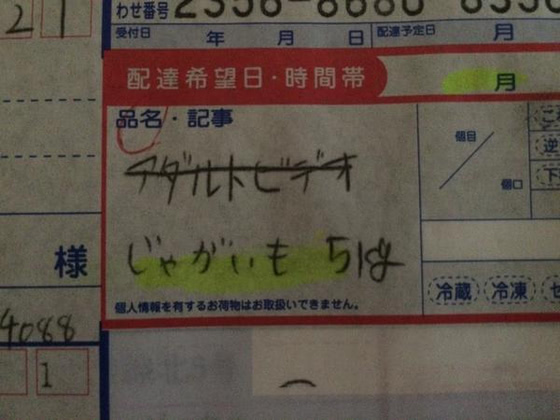 わせ番号 2356-8680
受付日 年 月 日 配達予定日 月
配達希望日・時間帯 月
品名・記事
アダルトビデオ
個目
個口
じゃがいも 5kg
様
個人情報を有するお荷物はお取扱いできません。
冷蔵 冷凍
4088
1